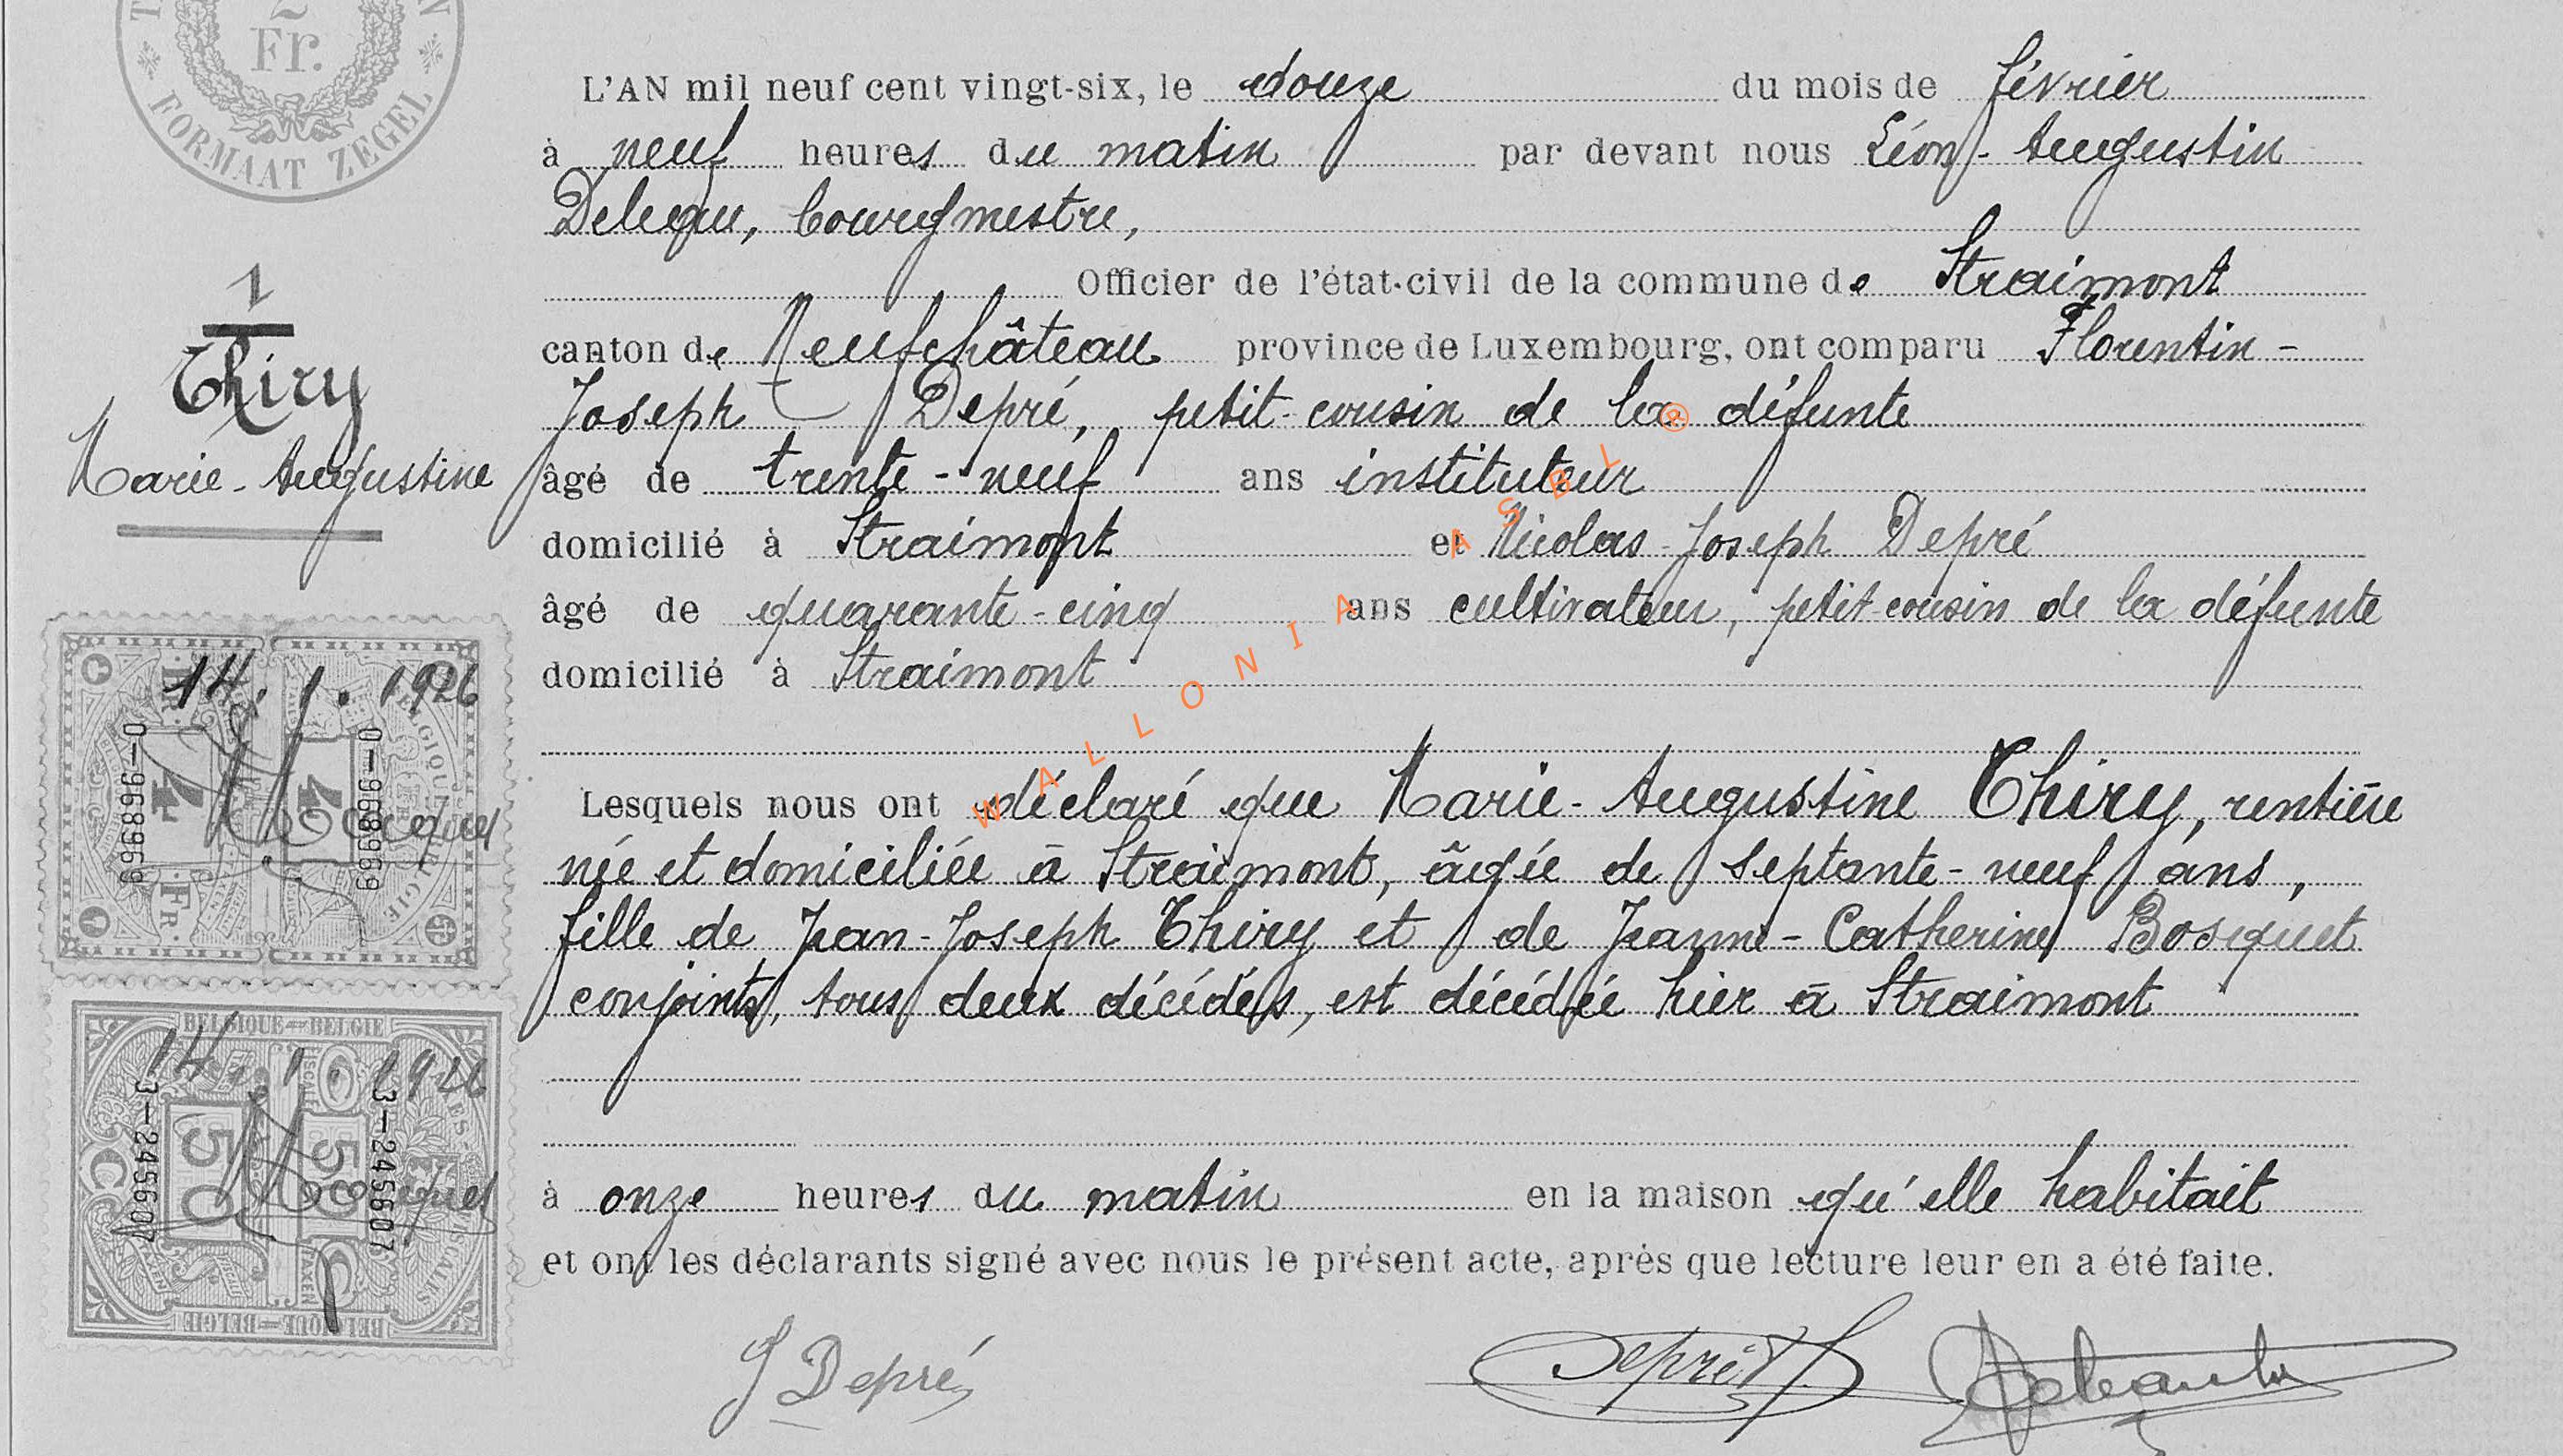 2
Fr.
FORMAAT ZEGEL
L'AN mil neuf cent vingt-six, le douze du mois de février
à neuf heures du matin par devant nous Léon-Augustin
bourgmestre,
Officier de l'état-civil de la commune de Straimont
canton de Neufchâteau province de Luxembourg, ont comparu Florentin-
Joseph Depré, petit-cousin de la défunte
âgé de trente-neuf ans instituteur
domicilié à Straimont et Nicolas-Joseph Depré
âgé de quarante-cinq ans cultivateur, petit-cousin de la défunte
domicilié à Straimont
1
Thiry
Marie-Augustine
Lesquels nous ont déclaré que Marie-Augustine Thiry, rentière
née et domiciliée à Straimont, âgée de septante-neuf ans,
fille de Jean-Joseph Thiry et de Jeanne-Catherine Bosquet
conjoints, tous deux décédés, est décédée hier à Straimont
à onze heures du matin en la maison qu'elle habitait
et ont les déclarants signé avec nous le présent acte, après que lecture leur en a été faite.
J Depré
Depré
14.1.1926
0-968969
0-968969
4
4
FR.
FR.
BELGIQUE-BELGIE
14.1.1926
3-245607
3-245607
50
50
BELGIQUE-BELGIE
WALLONIA ASBL ®